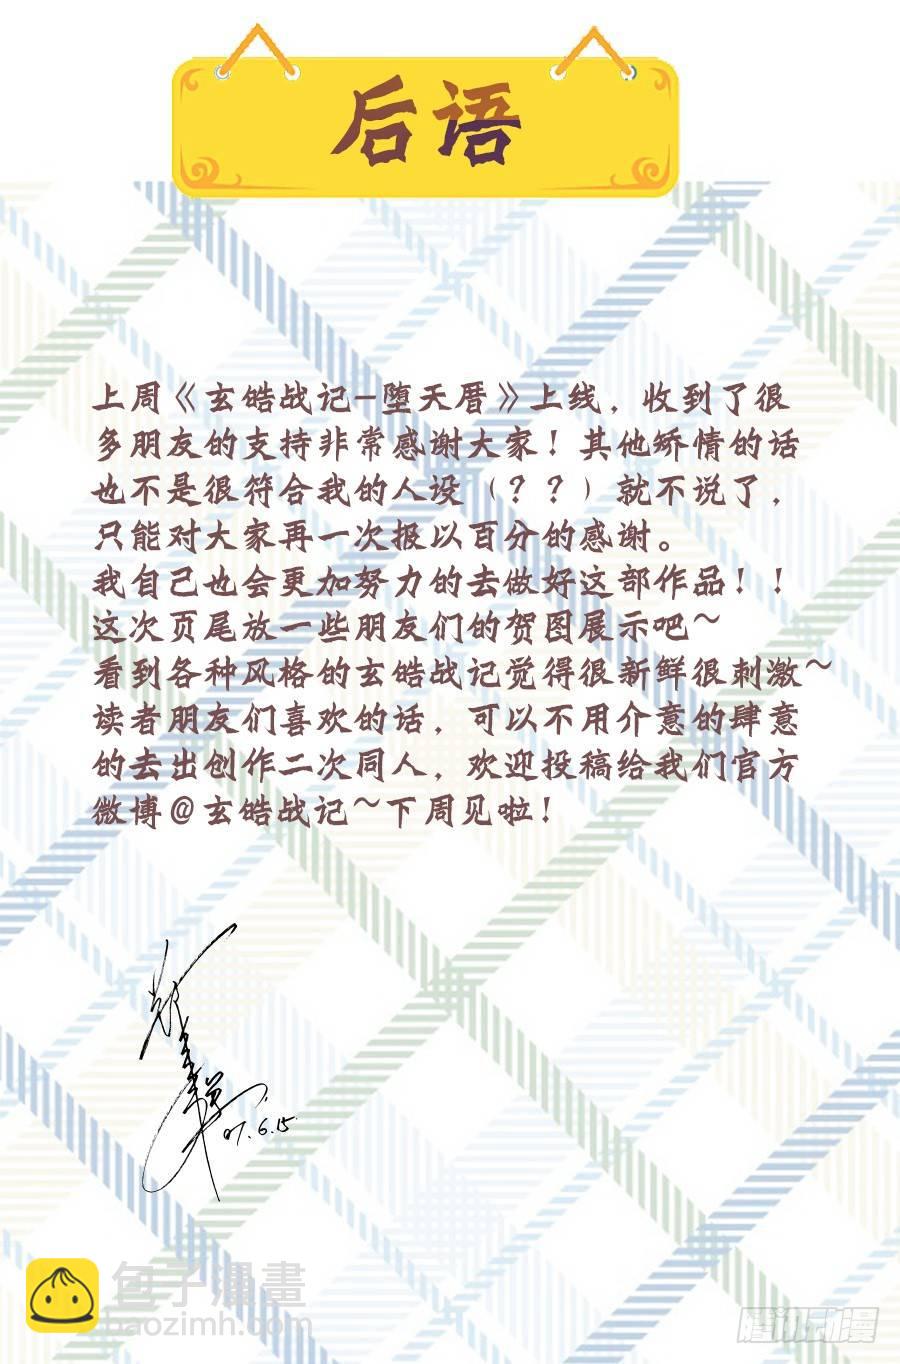 后语
上周《玄皓战记-堕天厝》上线，收到了很
多朋友的支持非常感谢大家！其他矫情的话
也不是很符合我的人设（？？）就不说了，
只能对大家再一次报以百分的感谢。
我自己也会更加努力的去做好这部作品！！
这次页尾放一些朋友们的贺图展示吧~
看到各种风格的玄皓战记觉得很新鲜很刺激~
读者朋友们喜欢的话，可以不用介意的肆意
的去出创作二次同人，欢迎投稿给我们官方
微博@玄皓战记~下周见啦！
07.6.15
包子漫畫
baozimh.com
腾讯动漫